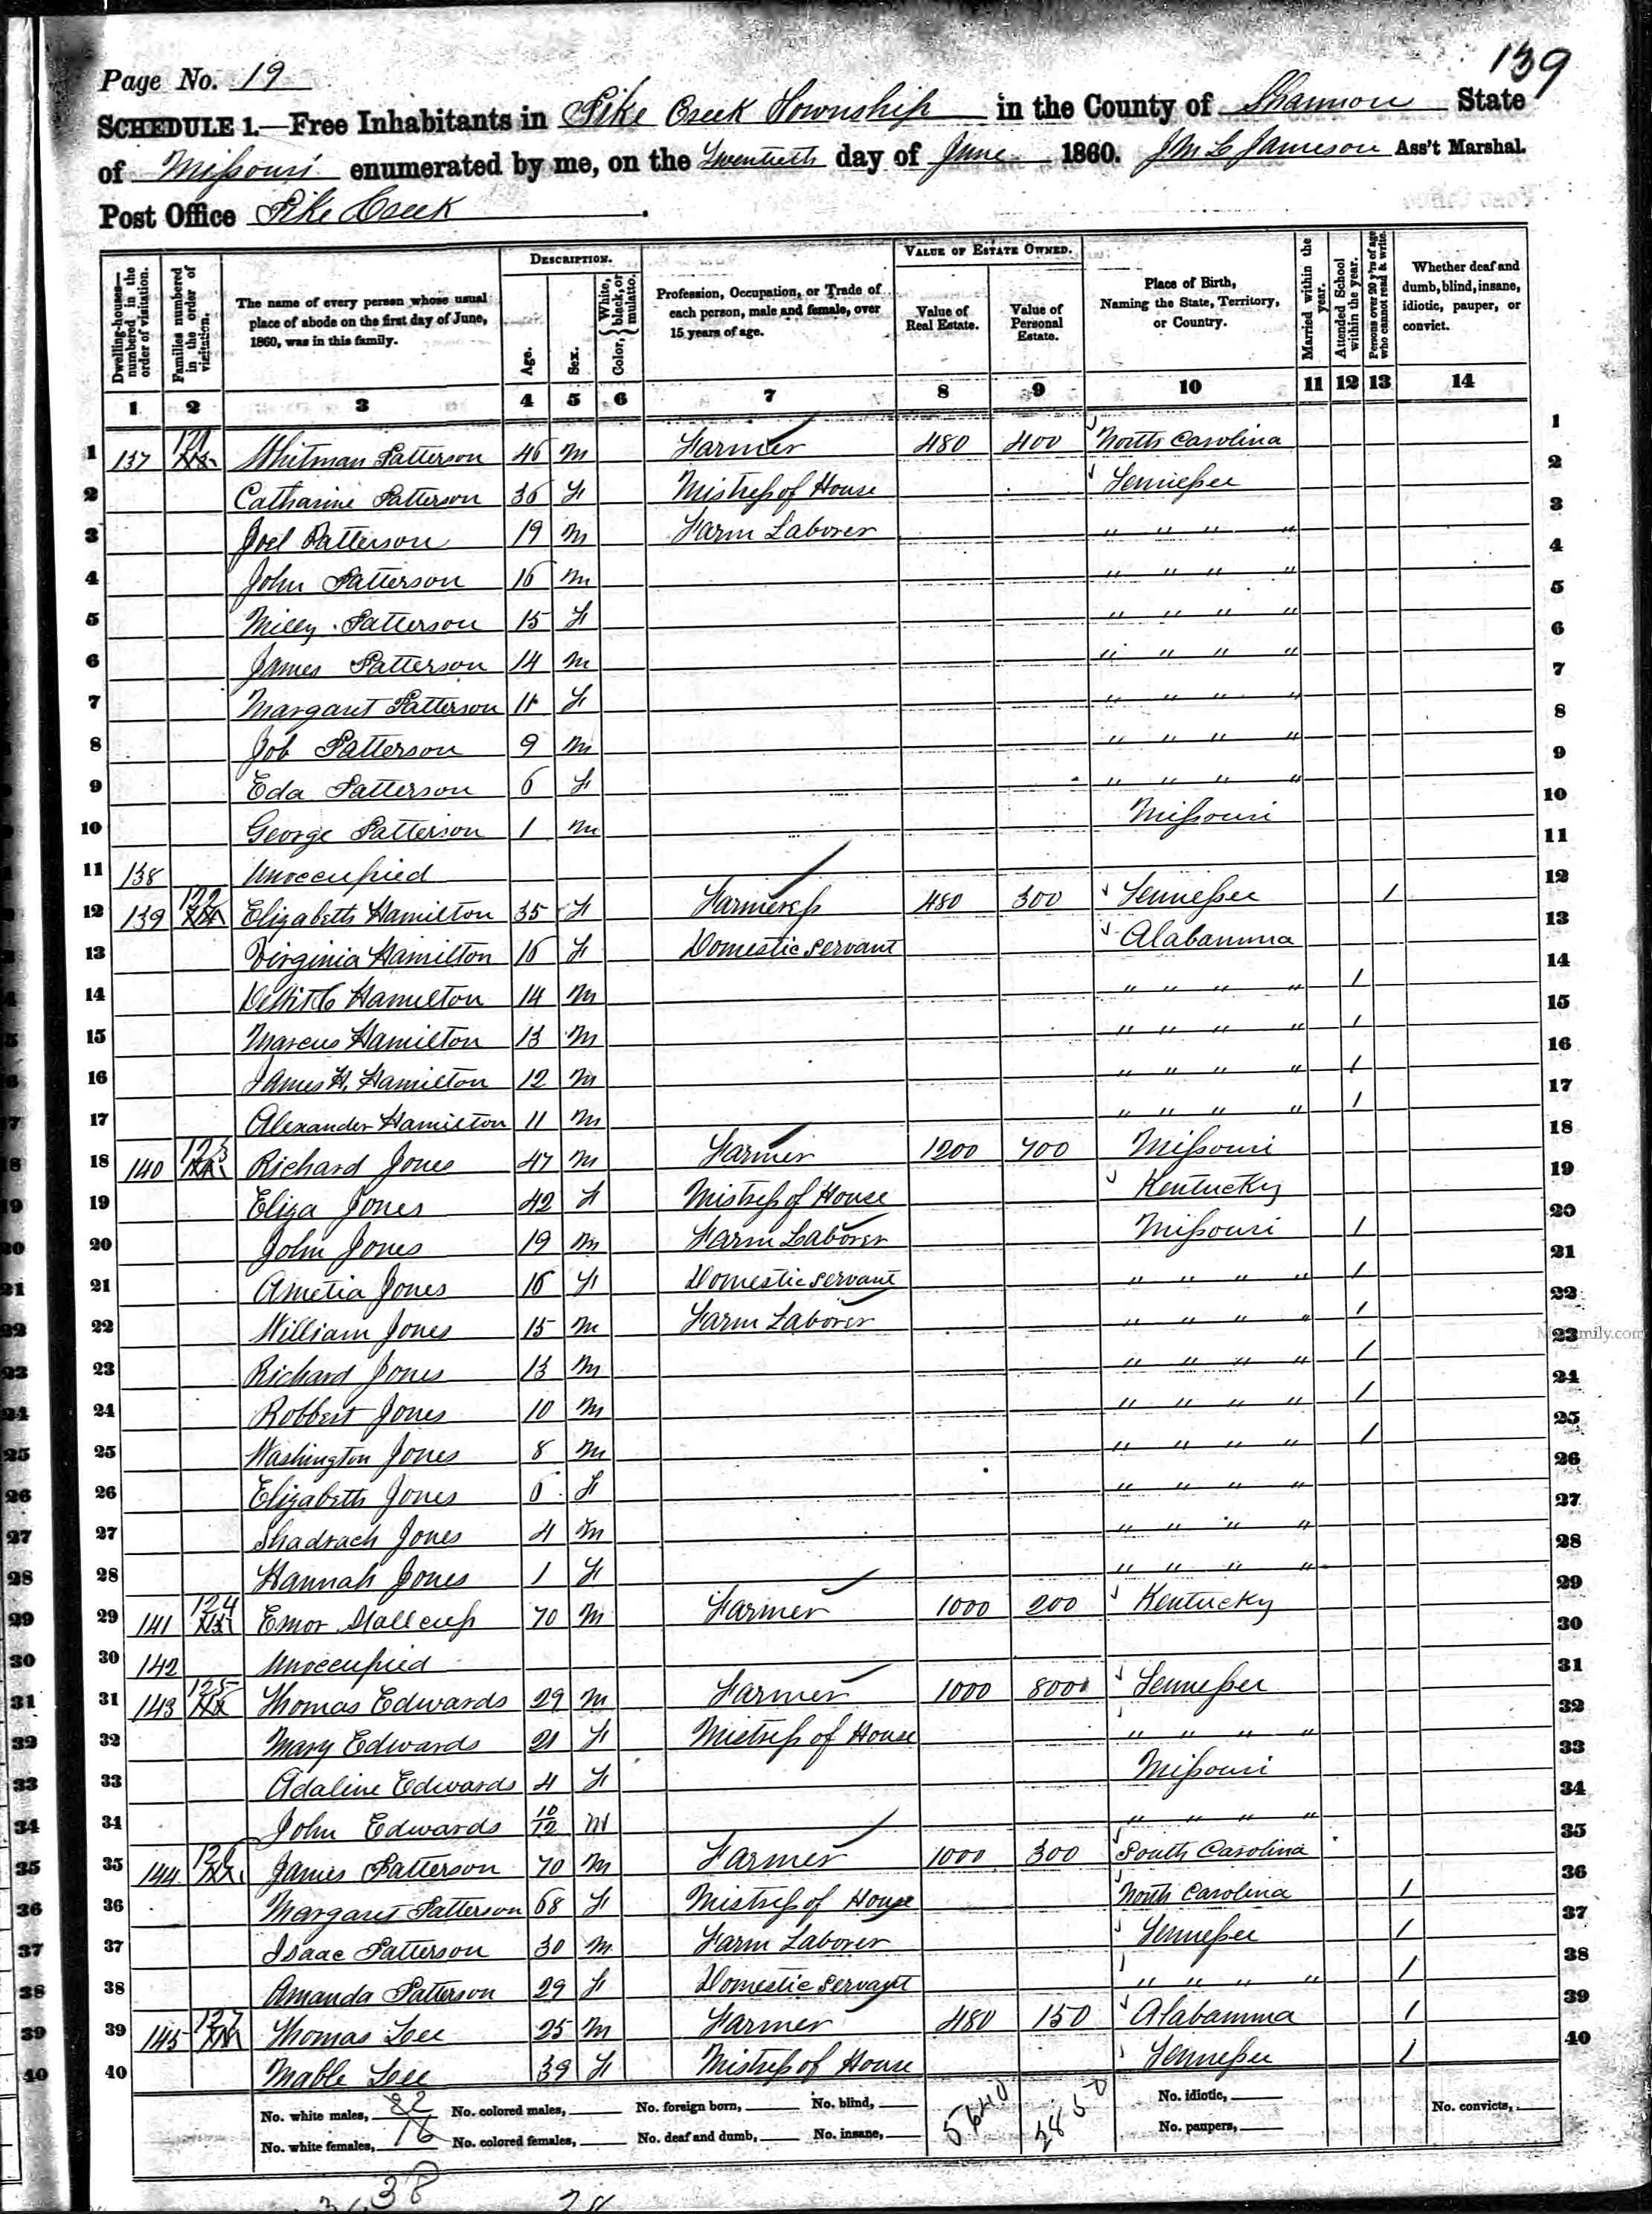 139
Page No. 19
SCHEDULE 1.—Free Inhabitants in Pike Creek Township in the County of Shannon State
of Missouri enumerated by me, on the Twentieth day of June 1860. J M L Jameson Ass't Marshal.
Post Office Pike Creek
Dwelling-houses—numbered in the order of visitation. Families numbered in the order of visitation. The name of every person whose usual place of abode on the first day of June, 1860, was in this family. DESCRIPTION. Age. Sex. Color, { White, black, or mulatto. Profession, Occupation, or Trade of each person, male and female, over 15 years of age. VALUE OF ESTATE OWNED. Value of Real Estate. Value of Personal Estate. Place of Birth, Naming the State, Territory, or Country. Married within the year. Attended School within the year. Persons over 20 y'rs of age who cannot read & write. Whether deaf and dumb, blind, insane, idiotic, pauper, or convict.
1 2 3 4 5 6 7 8 9 10 11 12 13 14
1 137 121 Whitman Patterson 46 M Farmer 480 400 North Carolina 1
2 Catharine Patterson 36 F Mistress of House Tennessee 2
3 Joel Patterson 19 M Farm Laborer " " " " 3
4 John Patterson 16 M " " " " 4
5 Milly Patterson 15 F " " " " 5
6 James Patterson 14 M " " " " 6
7 Margaret Patterson 11 F " " " " 7
8 Job Patterson 9 M " " " " 8
9 Eda Patterson 6 F " " " " 9
10 George Patterson 1 M Missouri 10
11 138 Unoccupied 11
12 139 122 Elizabeth Hamilton 35 F Farmeress 480 300 Tennessee / 12
13 Virginia Hamilton 16 F Domestic Servant Alabamma 13
14 Hamilton 14 M " " " " / 14
15 Marcus Hamilton 13 M " " " " / 15
16 James H. Hamilton 12 M " " " " / 16
17 Alexander Hamilton 11 M " " " " / 17
18 140 123 Richard Jones 47 M Farmer 1200 700 Missouri 18
19 Eliza Jones 42 F Mistress of House Kentucky 19
20 John Jones 19 M Farm Laborer Missouri / 20
21 Ametia Jones 16 F Domestic Servant " " " " / 21
22 William Jones 15 M Farm Laborer " " " " / 22
23 Richard Jones 13 M " " " " / 23
24 Robbert Jones 10 M " " " " / 24
25 Washington Jones 8 M " " " " / 25
26 Elizabeth Jones 6 F " " " " 26
27 Shadrach Jones 4 M " " " " 27
28 Hannah Jones 1 F " " " " 28
29 141 124 Emor Stallcup 70 M Farmer 1000 200 Kentucky 29
30 142 Unoccupied 30
31 143 125 Thomas Edwards 29 M Farmer 1000 800 Tennessee 31
32 Mary Edwards 21 F Mistress of House " " " " 32
33 Adaline Edwards 4 F Missouri 33
34 John Edwards 10/12 M " " " " 34
35 144 126 James Patterson 70 M Farmer 1000 300 South Carolina 35
36 Margaret Patterson 68 F Mistress of House North Carolina / 36
37 Isaac Patterson 30 M Farm Laborer Tennessee / 37
38 Amanda Patterson 29 F Domestic Servant " " " " / 38
39 145 127 Thomas Lee 25 M Farmer 480 150 Alabamma / 39
40 Mable Lee 39 F Mistress of House Tennessee / 40
No. white males, 22 No. colored males, No. foreign born, No. blind, 5640 2850 No. idiotic, No. convicts,
No. white females, 16 No. colored females, No. deaf and dumb, No. insane, No. paupers,
38